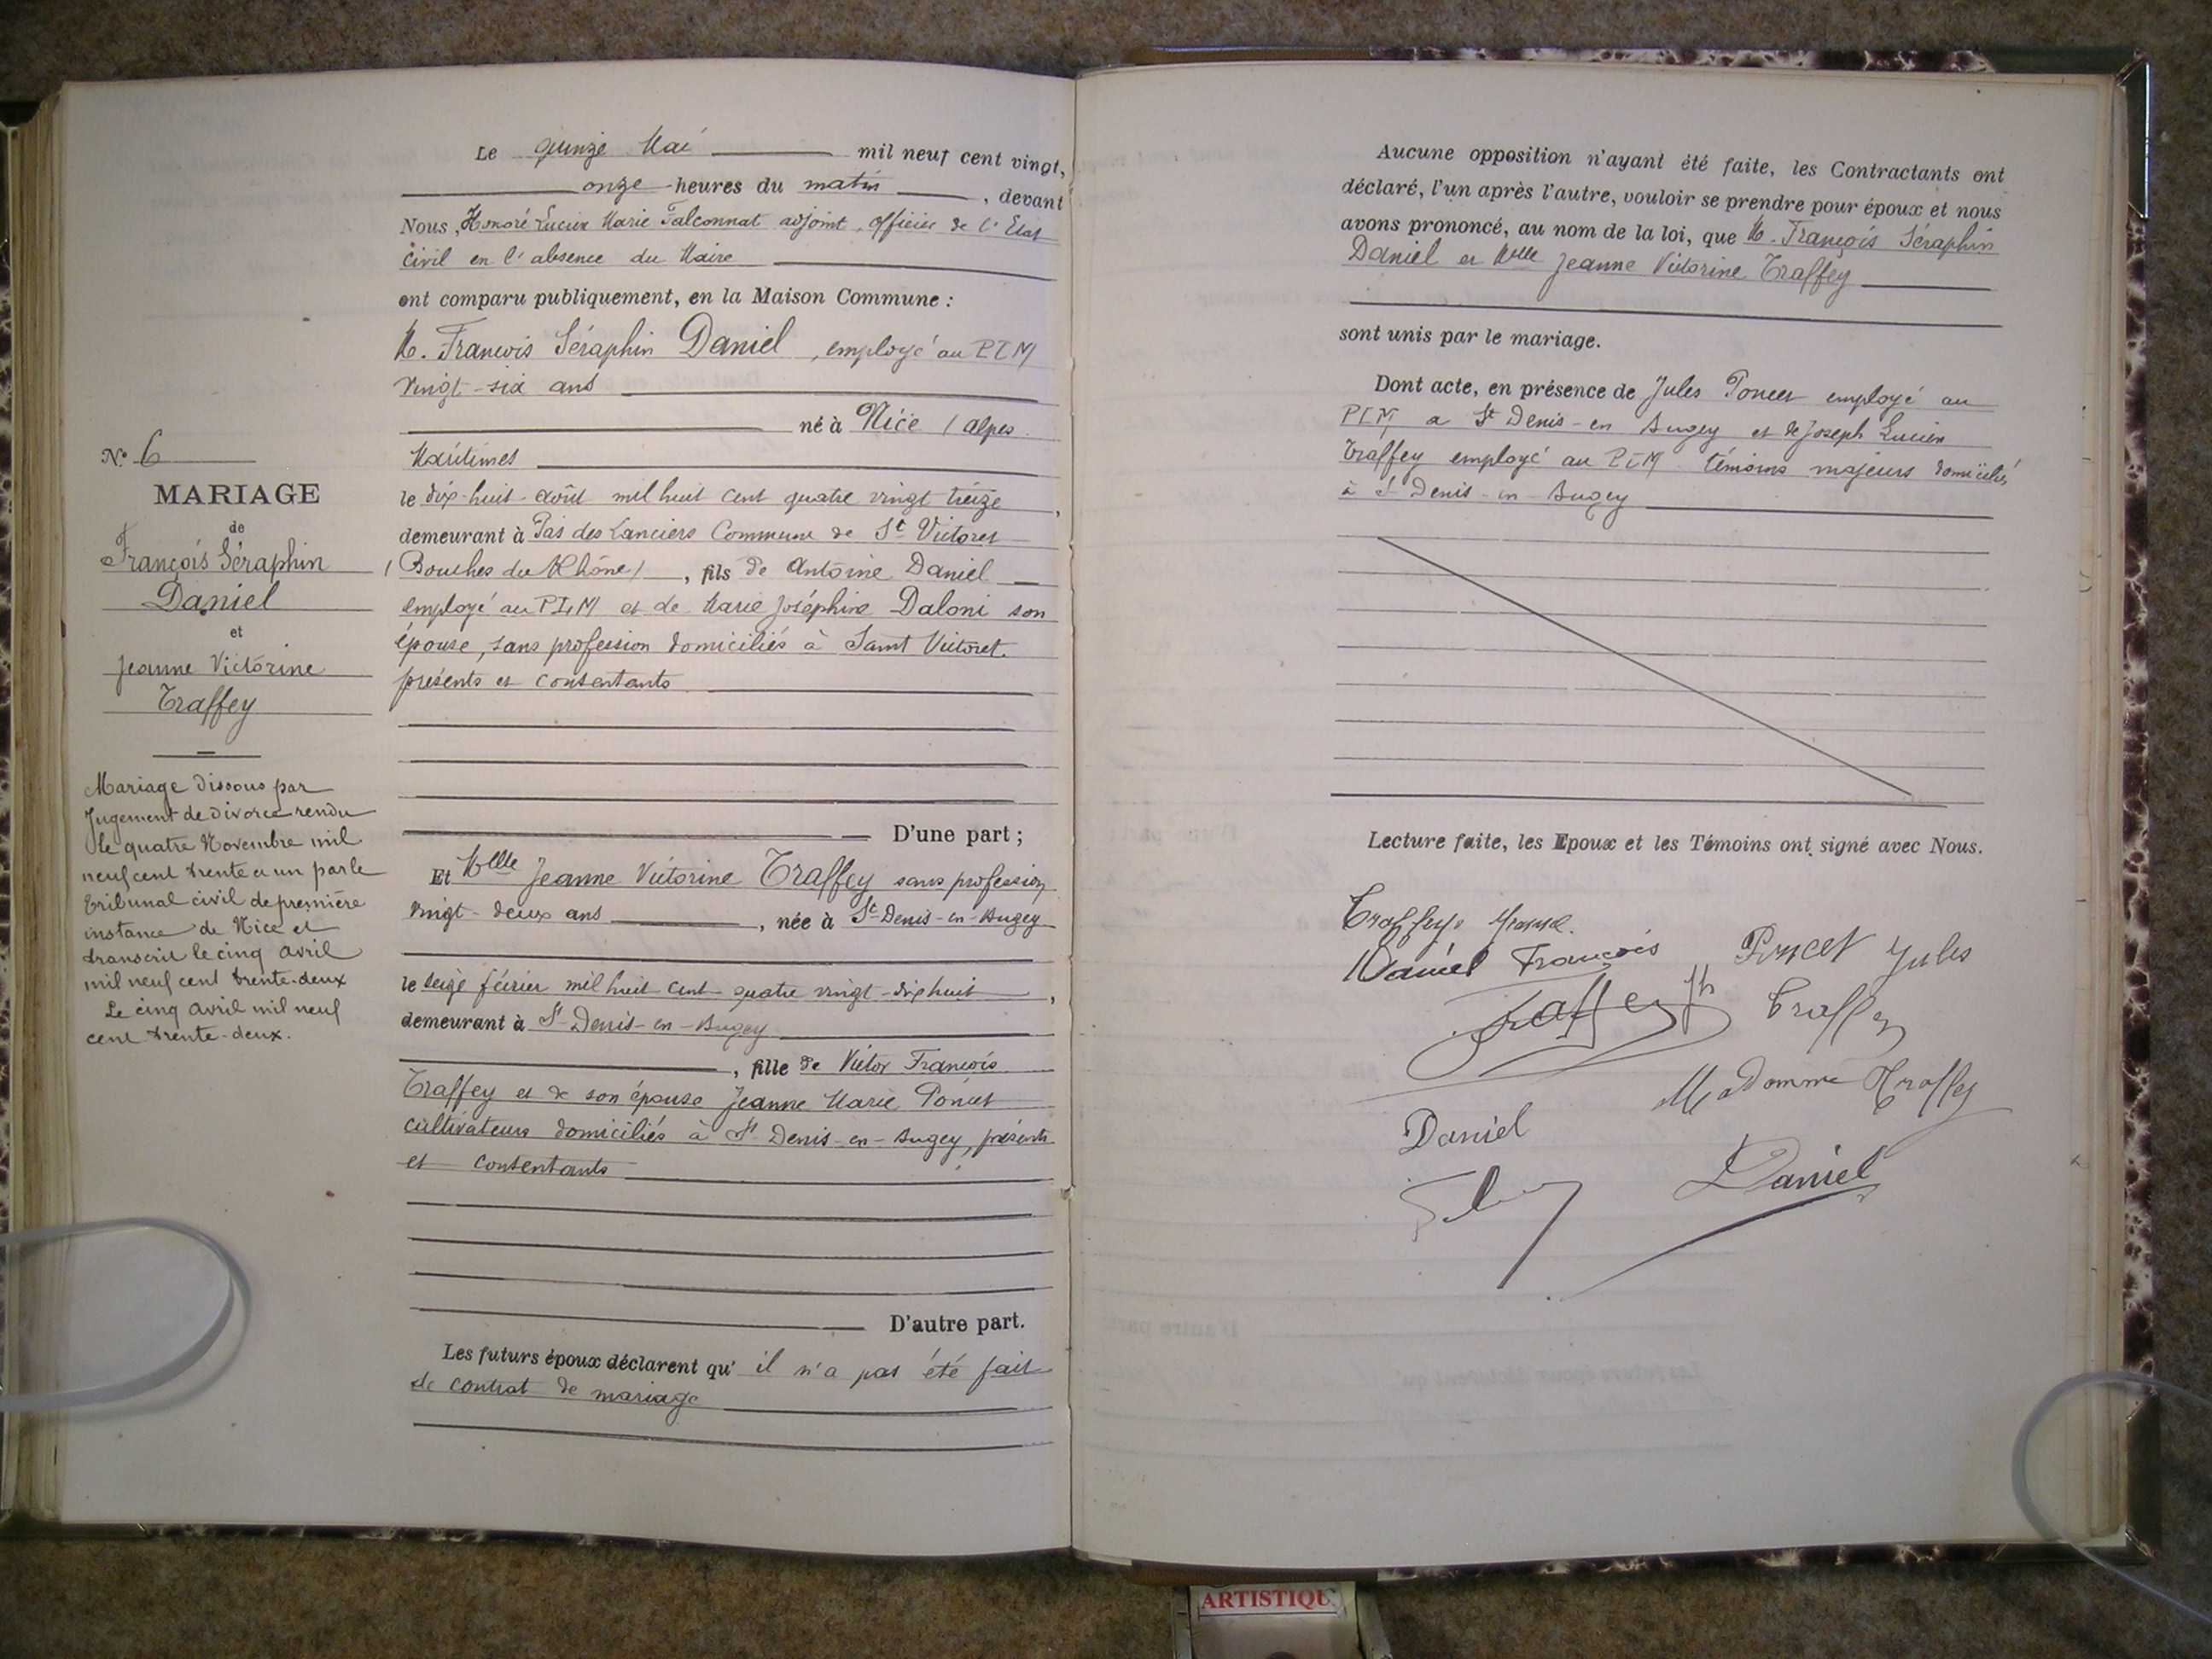 Le quinze Mai mil neuf cent vingt,
onze heures du matin, devant
Nous, Honoré Lucien Marie Falconnat adjoint, officier de l'Etat
Civil en l'absence du Maire
ont comparu publiquement, en la Maison Commune :
M. François Séraphin Daniel, employé au PLM
vingt-six ans
né à Nice (Alpes
Maritimes
le dix-huit août mil huit cent quatre vingt treize,
demeurant à Pas des Lanciers Commune de St Victoret
(Bouches du Rhône), fils de Antoine Daniel
employé au PLM et de Marie Joséphine Daloni son
épouse, sans profession domiciliés à Saint Victoret.
présents et consentants
D'une part ;
Et Melle Jeanne Victorine Traffey sans profession
vingt-deux ans, née à St-Denis-en-Bugey
le seize février mil huit cent quatre vingt-dix huit,
demeurant à St-Denis-en-Bugey
, fille de Victor François
Traffey et de son épouse Jeanne Marie Poncet
cultivateurs domiciliés à St Denis-en-Bugey, présents
et consentants
D'autre part.
Les futurs époux déclarent qu'il n'a pas été fait
de contrat de mariage
N° 6
MARIAGE
de
François Séraphin
Daniel
et
Jeanne Victorine
Traffey
Mariage dissous par
Jugement de divorce rendu
le quatre Novembre mil
neuf cent trente et un par le
Tribunal civil de première
instance de Nice et
transcrit le cinq avril
mil neuf cent trente-deux
Le cinq avril mil neuf
cent trente-deux.
Aucune opposition n'ayant été faite, les Contractants ont
déclaré, l'un après l'autre, vouloir se prendre pour époux et nous
avons prononcé, au nom de la loi, que M. François Séraphin
Daniel et Melle Jeanne Victorine Traffey
sont unis par le mariage.
Dont acte, en présence de Jules Poncet employé au
PLM a St Denis-en Bugey et de Joseph Lucien
Traffey employé au PLM témoins majeurs domiciliés
à St Denis-en-Bugey
Lecture faite, les Epoux et les Témoins ont signé avec Nous.
Traffey
Daniel François
Poncet Jules
Traffey
Traffey
Madomme Traffey
Daniel
Daniel
ARTISTIQU